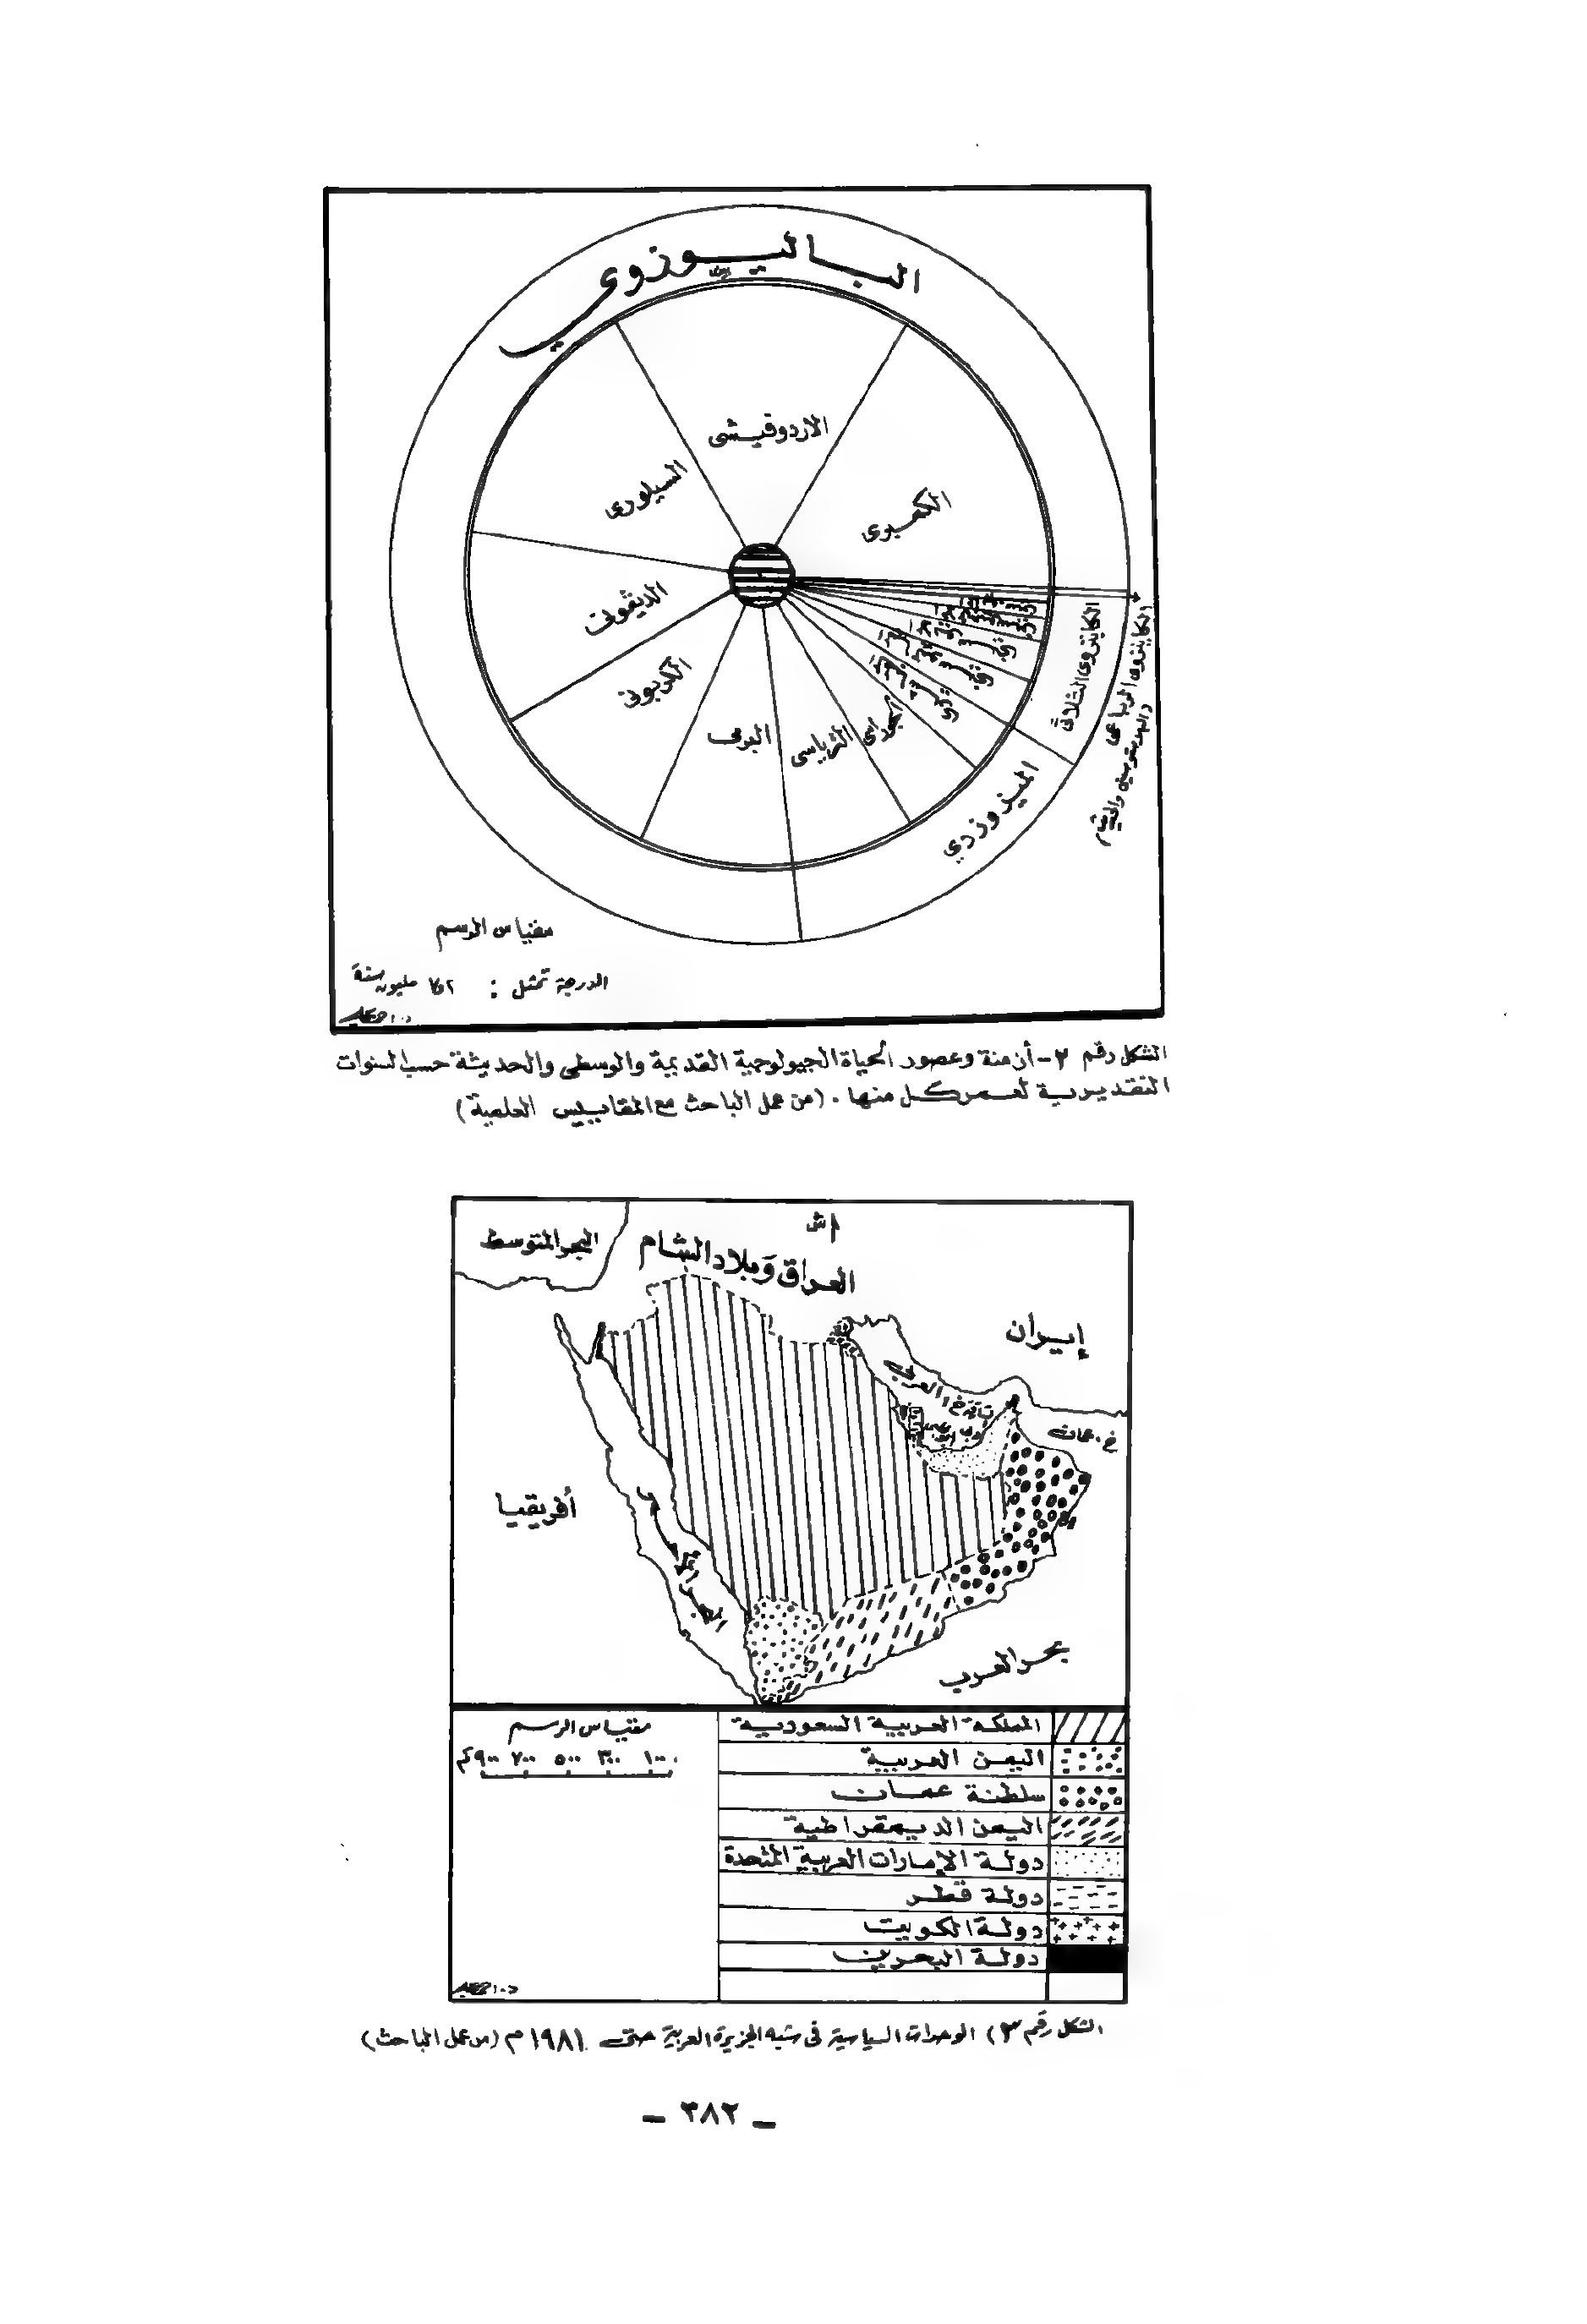 الباليوزوي
الاردوفيشى
السيلورى
الكمبرى
الديڤونى
الكربونى
البرمى
الترياسى
الجوراسى
الكاينزوى الثلاثى
الكاينزوى الرباعى
الميزوزوي
مقياس الرسم
الدرجة تمثل : ١٫٥٢ مليون سنة
الشكل رقم ٢ - أزمنة وعصور الحياة الجيولوجية القديمة والوسطى والحديثة حسب السنوات
التقديرية لعمر كل منها . (من عمل الباحث مع المقاييس العلمية)
ش
البحر المتوسط
العراق وبلاد الشام
إيران
خ. العربى
خ. عمان
أفريقيا
البحر الأحمر
بحر العرب
مقياس الرسم
١٠٠ ٣٠٠ ٥٠٠ ٧٠٠ ٩٠٠ كم
المملكة العربية السعودية
اليمن العربية
سلطنة عمان
اليمن الديمقراطية
دولة الإمارات العربية المتحدة
دولة قطر
دولة الكويت
دولة البحرين
الشكل رقم ٣) الوحدات السياسية فى شبه الجزيرة العربية حتى ١٩٨١ م (من عمل الباحث)
ـ ٣٨٢ ـ